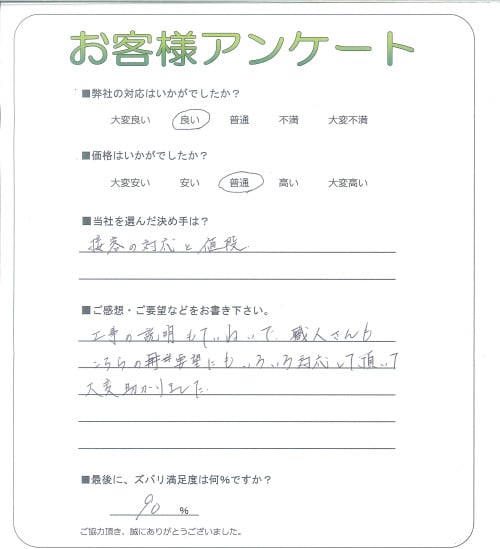 お客様アンケート
■弊社の対応はいかがでしたか?
大変良い 良い 普通 不満 大変不満
■価格はいかがでしたか?
大変安い 安い 普通 高い 大変高い
■当社を選んだ決め手は?
接客の対応と値段.
■ご感想・ご要望などをお書き下さい。
工事の説明もていねいで、職人さんも
こちらの要望にもいろいろ対応して頂いて
大変助かりました.
■最後に、ズバリ満足度は何%ですか?
90 %
ご協力頂き、誠にありがとうございました。